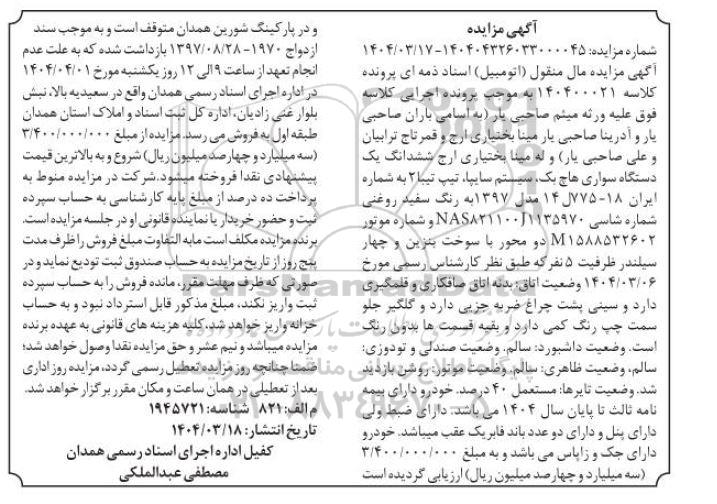 آگهی مزایده
شماره مزایده: ۱۴۰۴۰۴۳۲۶۰۳۳۰۰۰۰۴۵-۱۴۰۴/۰۳/۱۷
آگهی مزایده مال منقول (اتومبیل) اسناد ذمه ای پرونده
کلاسه ۱۴۰۴۰۰۰۲۱ به موجب پرونده اجرایی کلاسه
فوق علیه ورثه میثم صاحبی یار (به اسامی باران صاحبی
یار و آدرینا صاحبی یار مینا بختیاری ارج و قمر تاج ترابیان
و علی صاحبی یار) و له مینا بختیاری ارج ششدانگ یک
دستگاه سواری هاچ بک، سیستم سایپا، تیپ تیبا۲ به شماره
ایران ۱۸-۷۷۵ل۱۴ مدل ۱۳۹۷به رنگ سفید روغنی
شماره شاسی NAS۸۲۱۱۰۰J۱۱۳۵۹۷۰ و شماره موتور
M۱۵۸۸۵۳۲۶۰۲ دو محور با سوخت بنزین و چهار
سیلندر ظرفیت ۵ نفر که طبق نظر کارشناس رسمی مورخ
۱۴۰۴/۰۳/۰۶ وضعیت اتاق: بدنه اتاق صافکاری و قلمگیری
دارد و سینی پشت چراغ ضربه جزیی دارد و گلگیر جلو
سمت چپ رنگ کمی دارد و بقیه قسمت ها بدون رنگ
است. وضعیت داشبورد: سالم. وضعیت صندلی و تودوزی:
سالم، وضعیت ظاهری: سالم. وضعیت موتور: روشن بازدید
شد. وضعیت تایرها: مستعمل ۴۰ درصد. خودرو دارای بیمه
نامه ثالث تا پایان سال ۱۴۰۴ می باشد. دارای ضبط ولی
دارای پنل و دارای دو عدد باند فابریک عقب میباشد. خودرو
دارای جک و زاپاس می باشد و به مبلغ ۳/۴۰۰/۰۰۰/۰۰۰
(سه میلیارد و چهارصد میلیون ریال) ارزیابی گردیده است
و در پارکینگ شورین همدان متوقف است و به موجب سند
ازدواج ۱۹۷۰-۱۳۹۷/۰۸/۲۸ بازداشت شده که به علت عدم
انجام تعهد از ساعت ۹ الی ۱۲ روز یکشنبه مورخ ۱۴۰۴/۰۴/۰۱
در اداره اجرای اسناد رسمی همدان واقع در سعیدیه بالا، نبش
بلوار غنی زادیان، اداره کل ثبت اسناد و املاک استان همدان
طبقه اول به فروش می رسد. مزایده از مبلغ ۳/۴۰۰/۰۰۰/۰۰۰
(سه میلیارد و چهارصد میلیون ریال) شروع و به بالاترین قیمت
پیشنهادی نقدا فروخته میشود. شرکت در مزایده منوط به
پرداخت ده درصد از مبلغ پایه کارشناسی به حساب سپرده
ثبت و حضور خریدار یا نماینده قانونی او در جلسه مزایده است.
برنده مزایده مکلف است مابه التفاوت مبلغ فروش را ظرف مدت
پنج روز از تاریخ مزایده به حساب صندوق ثبت تودیع نماید و در
صورتی که ظرف مهلت مقرر، مانده فروش را به حساب سپرده
ثبت واریز نکند، مبلغ مذکور قابل استرداد نبود و به حساب
خزانه واریز خواهد شد. کلیه هزینه های قانونی به عهده برنده
مزایده میباشد و نیم عشر و حق مزایده نقدا وصول خواهد شد؛
ضمنا چنانچه روز مزایده تعطیل رسمی گردد، مزایده روز اداری
بعد از تعطیلی در همان ساعت و مکان مقرر برگزار خواهد شد.
م الف: ۸۲۱ شناسه: ۱۹۴۵۷۲۱
تاریخ انتشار: ۱۴۰۴/۰۳/۱۸
کفیل اداره اجرای اسناد رسمی همدان
مصطفی عبدالملکی